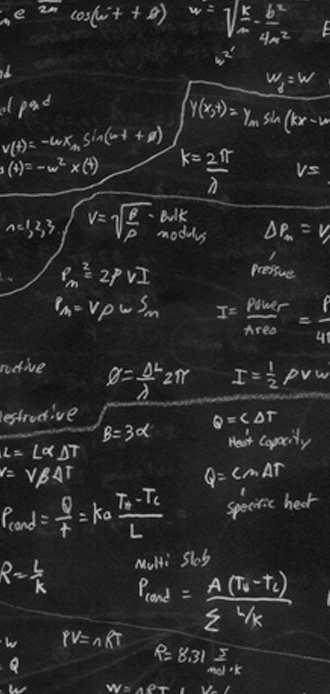 cos(w't + ø)
w = √ k/m - b²/4m²
w'²
W_d = W
al pend
Y(x,t) = Y_m sin(kx - w
v(t) = -wX_m sin(wt + ø)
a(t) = -w² x(t)
k = 2π/λ
V =
n=1,2,3..
V = √ B/ρ - Bulk modulus
ΔP_m = V
Pressure
P_m² = 2ρVI
P_m = Vρ w S_m
I = Power/Area = P/4π
ructive
ø = ΔL/λ 2π
I = ½ ρvw
destructive
B = 3α
Q = C ΔT
Heat Capacity
ΔL = LαΔT
V = VβΔT
Q = CmΔT
specific heat
P_cond = Q/t = ka T_H - T_C / L
R = L/k
Multi Slab
P_cond = A (T_H - T_C) / Σ L/k
PV = nRT
R = 8.31 J/mol·K
W = nRT